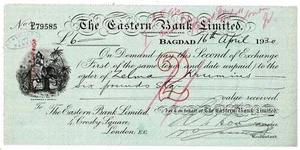 No E79585 The Eastern Bank Limited.
£6 BAGDAD 16th April 1930
On Demand pay this Second of Exchange
(First of the same tenor and date unpaid) to the
order of Zelma
Six pounds
value received.
To The Eastern Bank Limited, For & on behalf of The Eastern Bank, Limited.
4 Crosby Square,
London, E.C.